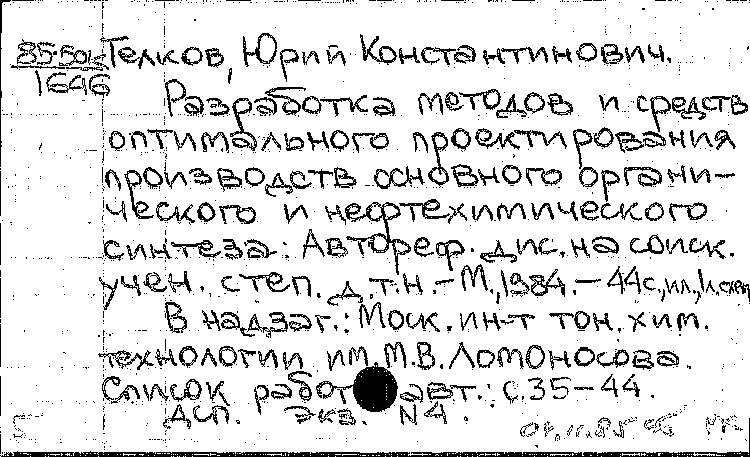 85-50к Телков, Юрий Константинович.
1646
Разработка методов и средств
оптимального проектирования
производств основного органи-
ческого и нефтехимического
синтеза: Автореф. дис. на соиск.
учен. степ. д.т.н. - М., 1984. - 44с., ил., 1л. схем
В надзаг.: Моск. ин-т тон. хим.
технологии им. М.В. Ломоносова.
Список работ авт.: с. 35-44.
ДСП. Экз. N4.
5